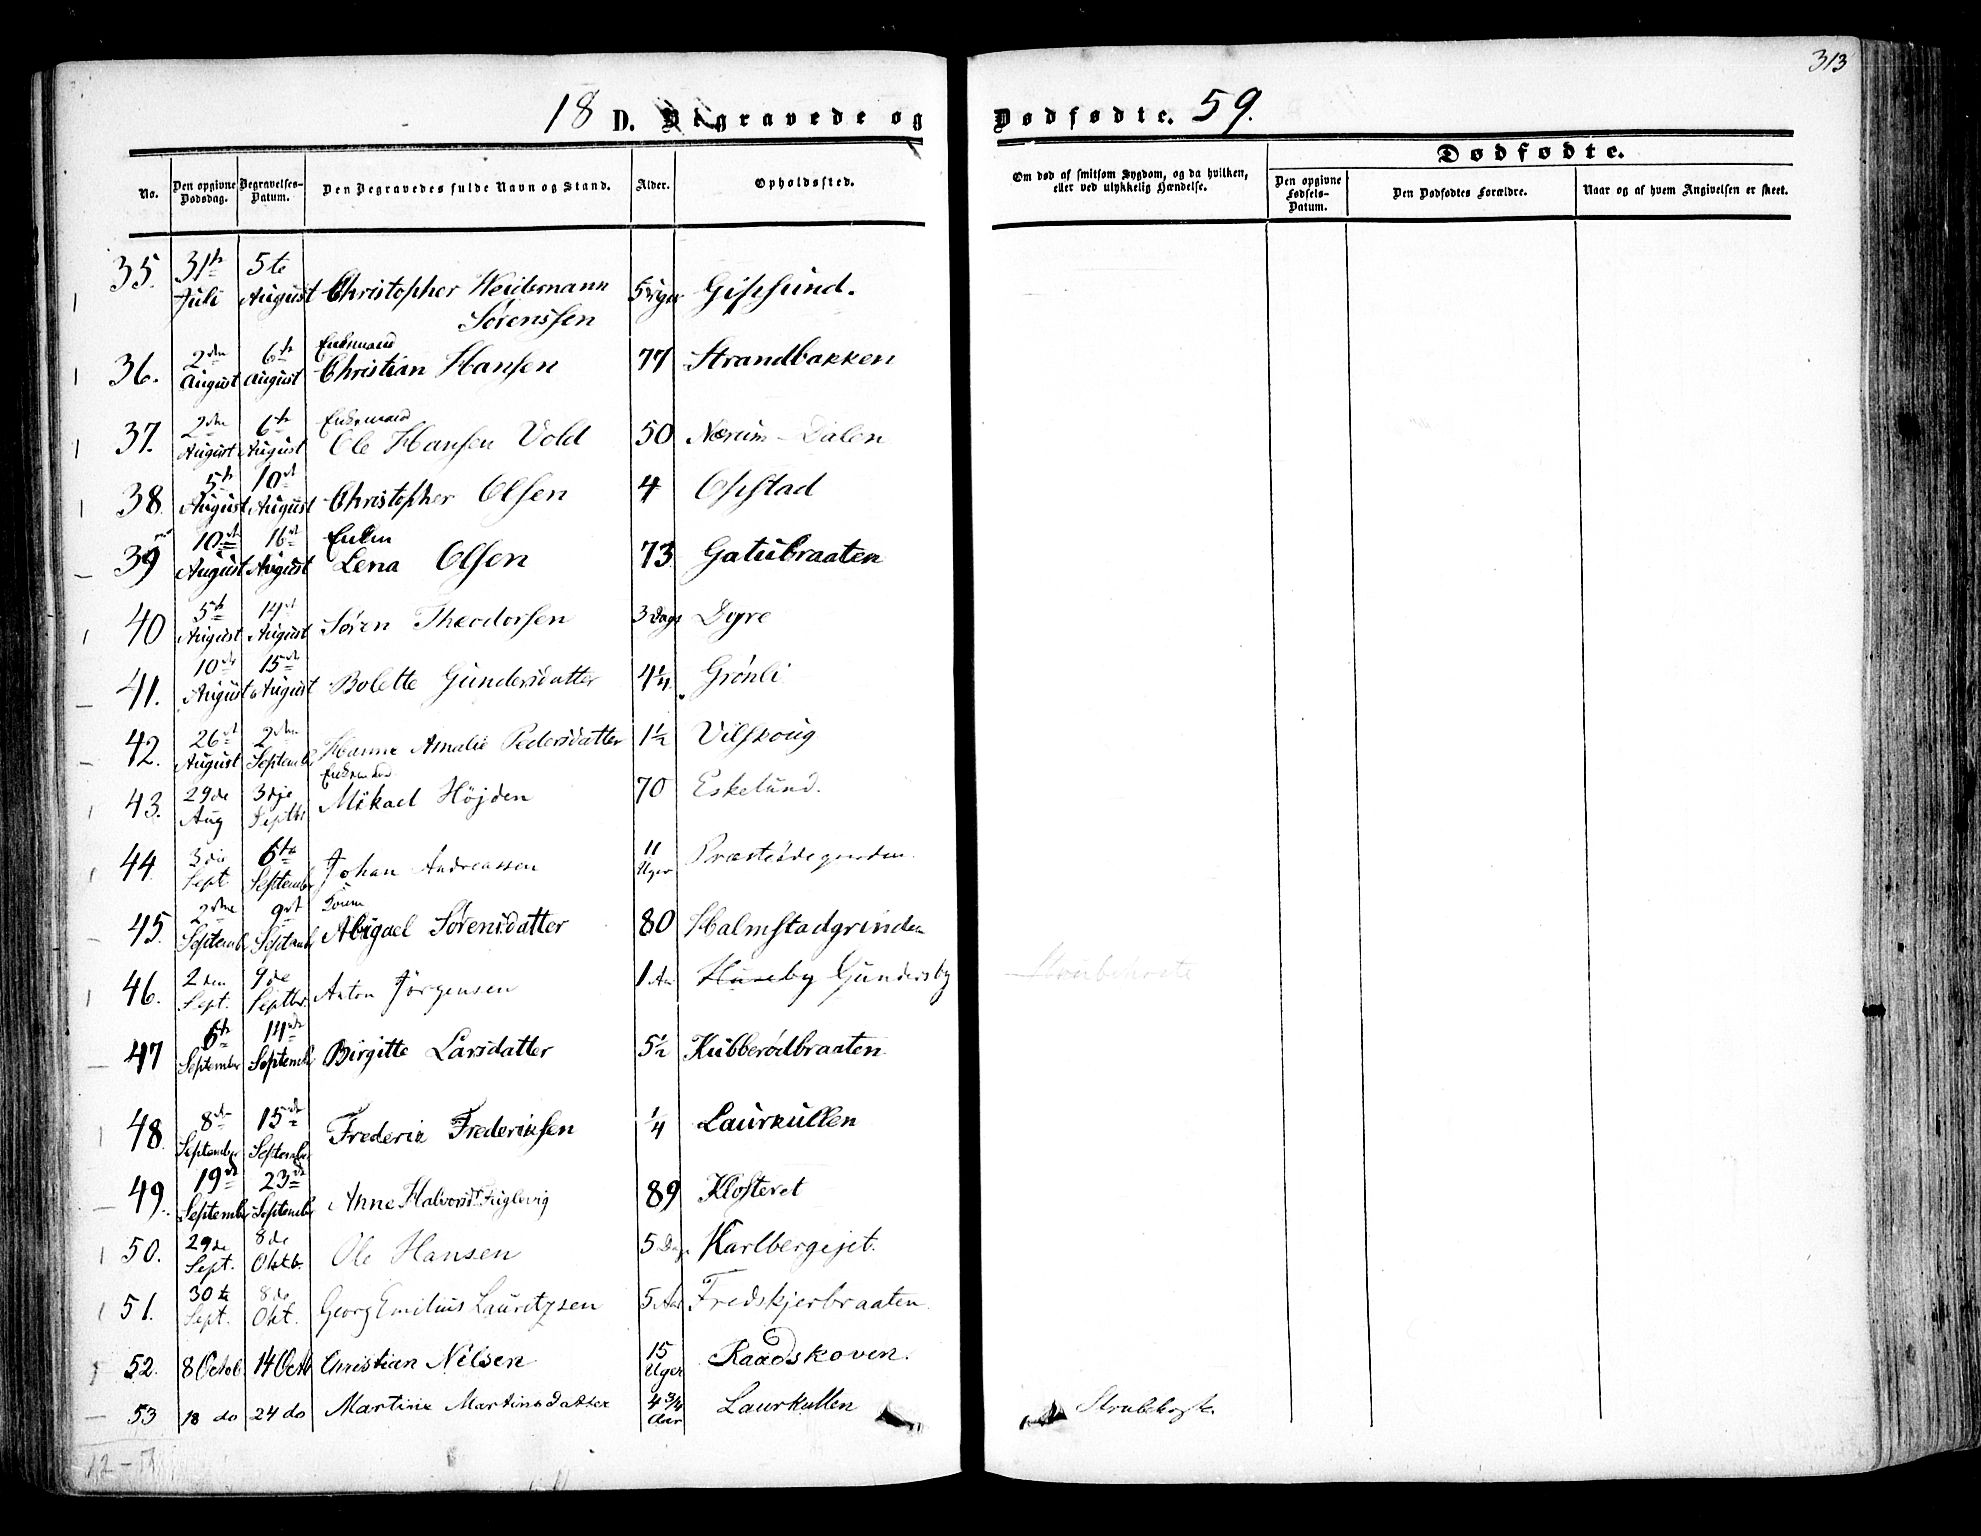 313
18 D. Begravede og Dødfødte. 59.
No. Den opgivne Dødsdag. Begravelses-Datum. Den Begravedes fulde Navn og Stand. Alder. Opholdssted. Om død af smitsom Sygdom, og da hvilken, eller ved ulykkelig Hændelse. Dødfødte.
Den opgivne Fødsels-Datum. Den Dødfødtes Forældre. Naar og af hvem Angivelsen er skeet.
35. 31te Juli 5te August Christopher Weidemann Sørenssen 5 Uger Gipsund.
36. 2den August 6te August Enkemand Christian Hansen 77 Strandbakken
37. 2den August 6te August Enkemand Ole Hansen Vold 50 Nærum-Dalen
38. 5te August 10de August Christopher Olsen 4 Opstad
39 10de August 16de August Enken Lena Olsen 73 Gatubraaten
40 5te August 14de August Søren Theodorsen 3 Dage Dyre
41. 10de August 15de August Bolette Gundersdatter 4 1/4 Grønli
42. 26de August 2den Septembr Hanne Amalie Pedersdatter 1 1/2 Vilskoug
43. 29de Aug 3dje Septbr Enkemand Mikael Höjden 70 Eskelund.
44. 3die Sept. 6te September Johan Andreassen 11 Uger Præsteødegården.
45. 2den Septemb. 9de Septemb. Abigael Sørensdatter 80 Halmstadgrinden
46. 2den Sept. 9de Septbr. Anton Jörgensen 1 Aar Huseby Gundersby Strubehoste
47 6te September 14de September Birgitte Larsdatter 5 1/2 Kubberødbraaten
48. 8de September 15de September Frederik Frederiksen 1/4 Laurkullen
49. 19de September 23de September Anne Halvorsd. Fuglevig 89 Klosteret
50. 29de Sept. 8de Oktb. Ole Hansen 5 Dage Karlbergejet.
51. 30te Sept. 8de Okt. Georg Emilius Lauritzsen 5 Aar Fredskjerbraaten.
52. 8 Octob. 14 Octb Christian Nilsen 15 Uger Raadskoven.
53 18 do 24 do Martine Martinsdatter 4 3/4 Aar Laurkullen Strubehoste.